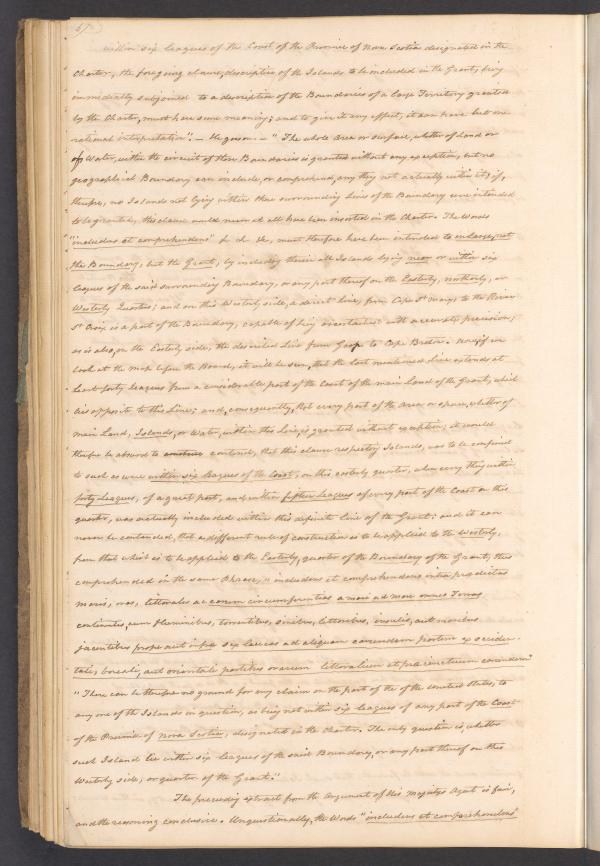 67
within six leagues of the Coast of the Province of Nova Scotia designated in the
Charter, the foregoing clause, descriptive of the Islands to be included in the Grant, being
immediately subjoined to a description of the Boundaries of a Large Territory granted
by the Charter, must have some meaning; and to give it any effect, it can have but one
rational interpretation". — He goes on — "The whole Area or surface, whether of Land or
of Water, within the circuit of these Boundaries is granted without any exception, but no
geographical Boundary can include, or comprehend, any thing not actually within it; if,
therefore, no Islands not lying within these surrounding Lines of the Boundary were intended
to be granted, this clause would never at all have been inserted in the Charter. The Words
"includens et comprehendens" &c &c &c, must therefore have been intended to enlarge, not
the Boundary, but the Grant, by including therein all Islands lying near or within six
leagues of the said surrounding Boundary, or any part thereof on the Easterly, northerly, or
Westerly Quarters; and on this Westerly side, a direct Line, from Cape St Mary's to the River
St Croix is a part of the Boundary, capable of being ascertained with accurate precision;
as is also, on the Easterly side, the described Line from Gaspe to Cape Breton. Now, if we
look at the Map before the Board, it will be seen, that the last mentioned Line extends at
Least forty leagues from a considerable part of the Coast of the main Land of the Grant, which
lies opposite to this Line; and, consequently, that every part of the Area or space, whether of
main Land, Islands, or Water, within this Line, is granted without exception; it would
therefore be absurd to contend, that this clause respecting Islands, was to be confined
to such as were within six leagues of the Coast, on this easterly quarter, when every thing within
forty Leagues, of a great part, and within fifteen Leagues of every part of the Coast on this
quarter, was actually included within this definite Line of the Grant; and it can
never be contended, that a different rule of construction is to be applied to the Westerly,
from that which is to be applied to the Easterly, quarter of the Boundary of the Grant, thus
comprehended in the same Phrase, "includens et comprehendens intra praedictas
maris, oras, littorales ac earum circumferentias a mari ad mare omnes Terras
continentes, cum fluminibus, torrentibus, sinubus, littoribus, insulis, aut maribus
jacentibus prope aut infra six leucas ad aliquam earundem partem ex occiden-
tali, boreali, aut orientali partibus orarum littoralium et praecinctuum earundem"
"There can be therefore no ground for any claim on the part of the of the United States, to
any one of the Islands in question, as being not within six leagues of any part of the Coast
of the Province of Nova Scotia, designated in the Charter. The only question is, whether
such Island lie within six leagues of the said Boundary, or any part thereof on this
Westerly side, or quarter of the Grant."
The preceding extract from the Argument of His Majestys Agent is fair,
and the reasoning conclusive. Unquestionably, the Words "includens et comprehendens"